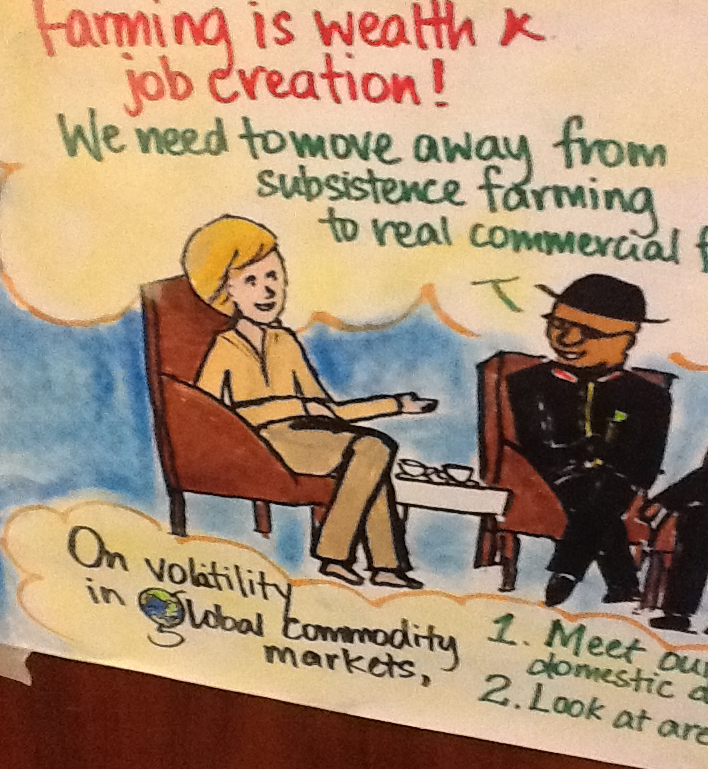 Farming is wealth &
job creation!
We need to move away from
subsistence farming
to real commercial f
On volatility
in Global commodity
markets,
1. Meet our
domestic d
2. Look at are